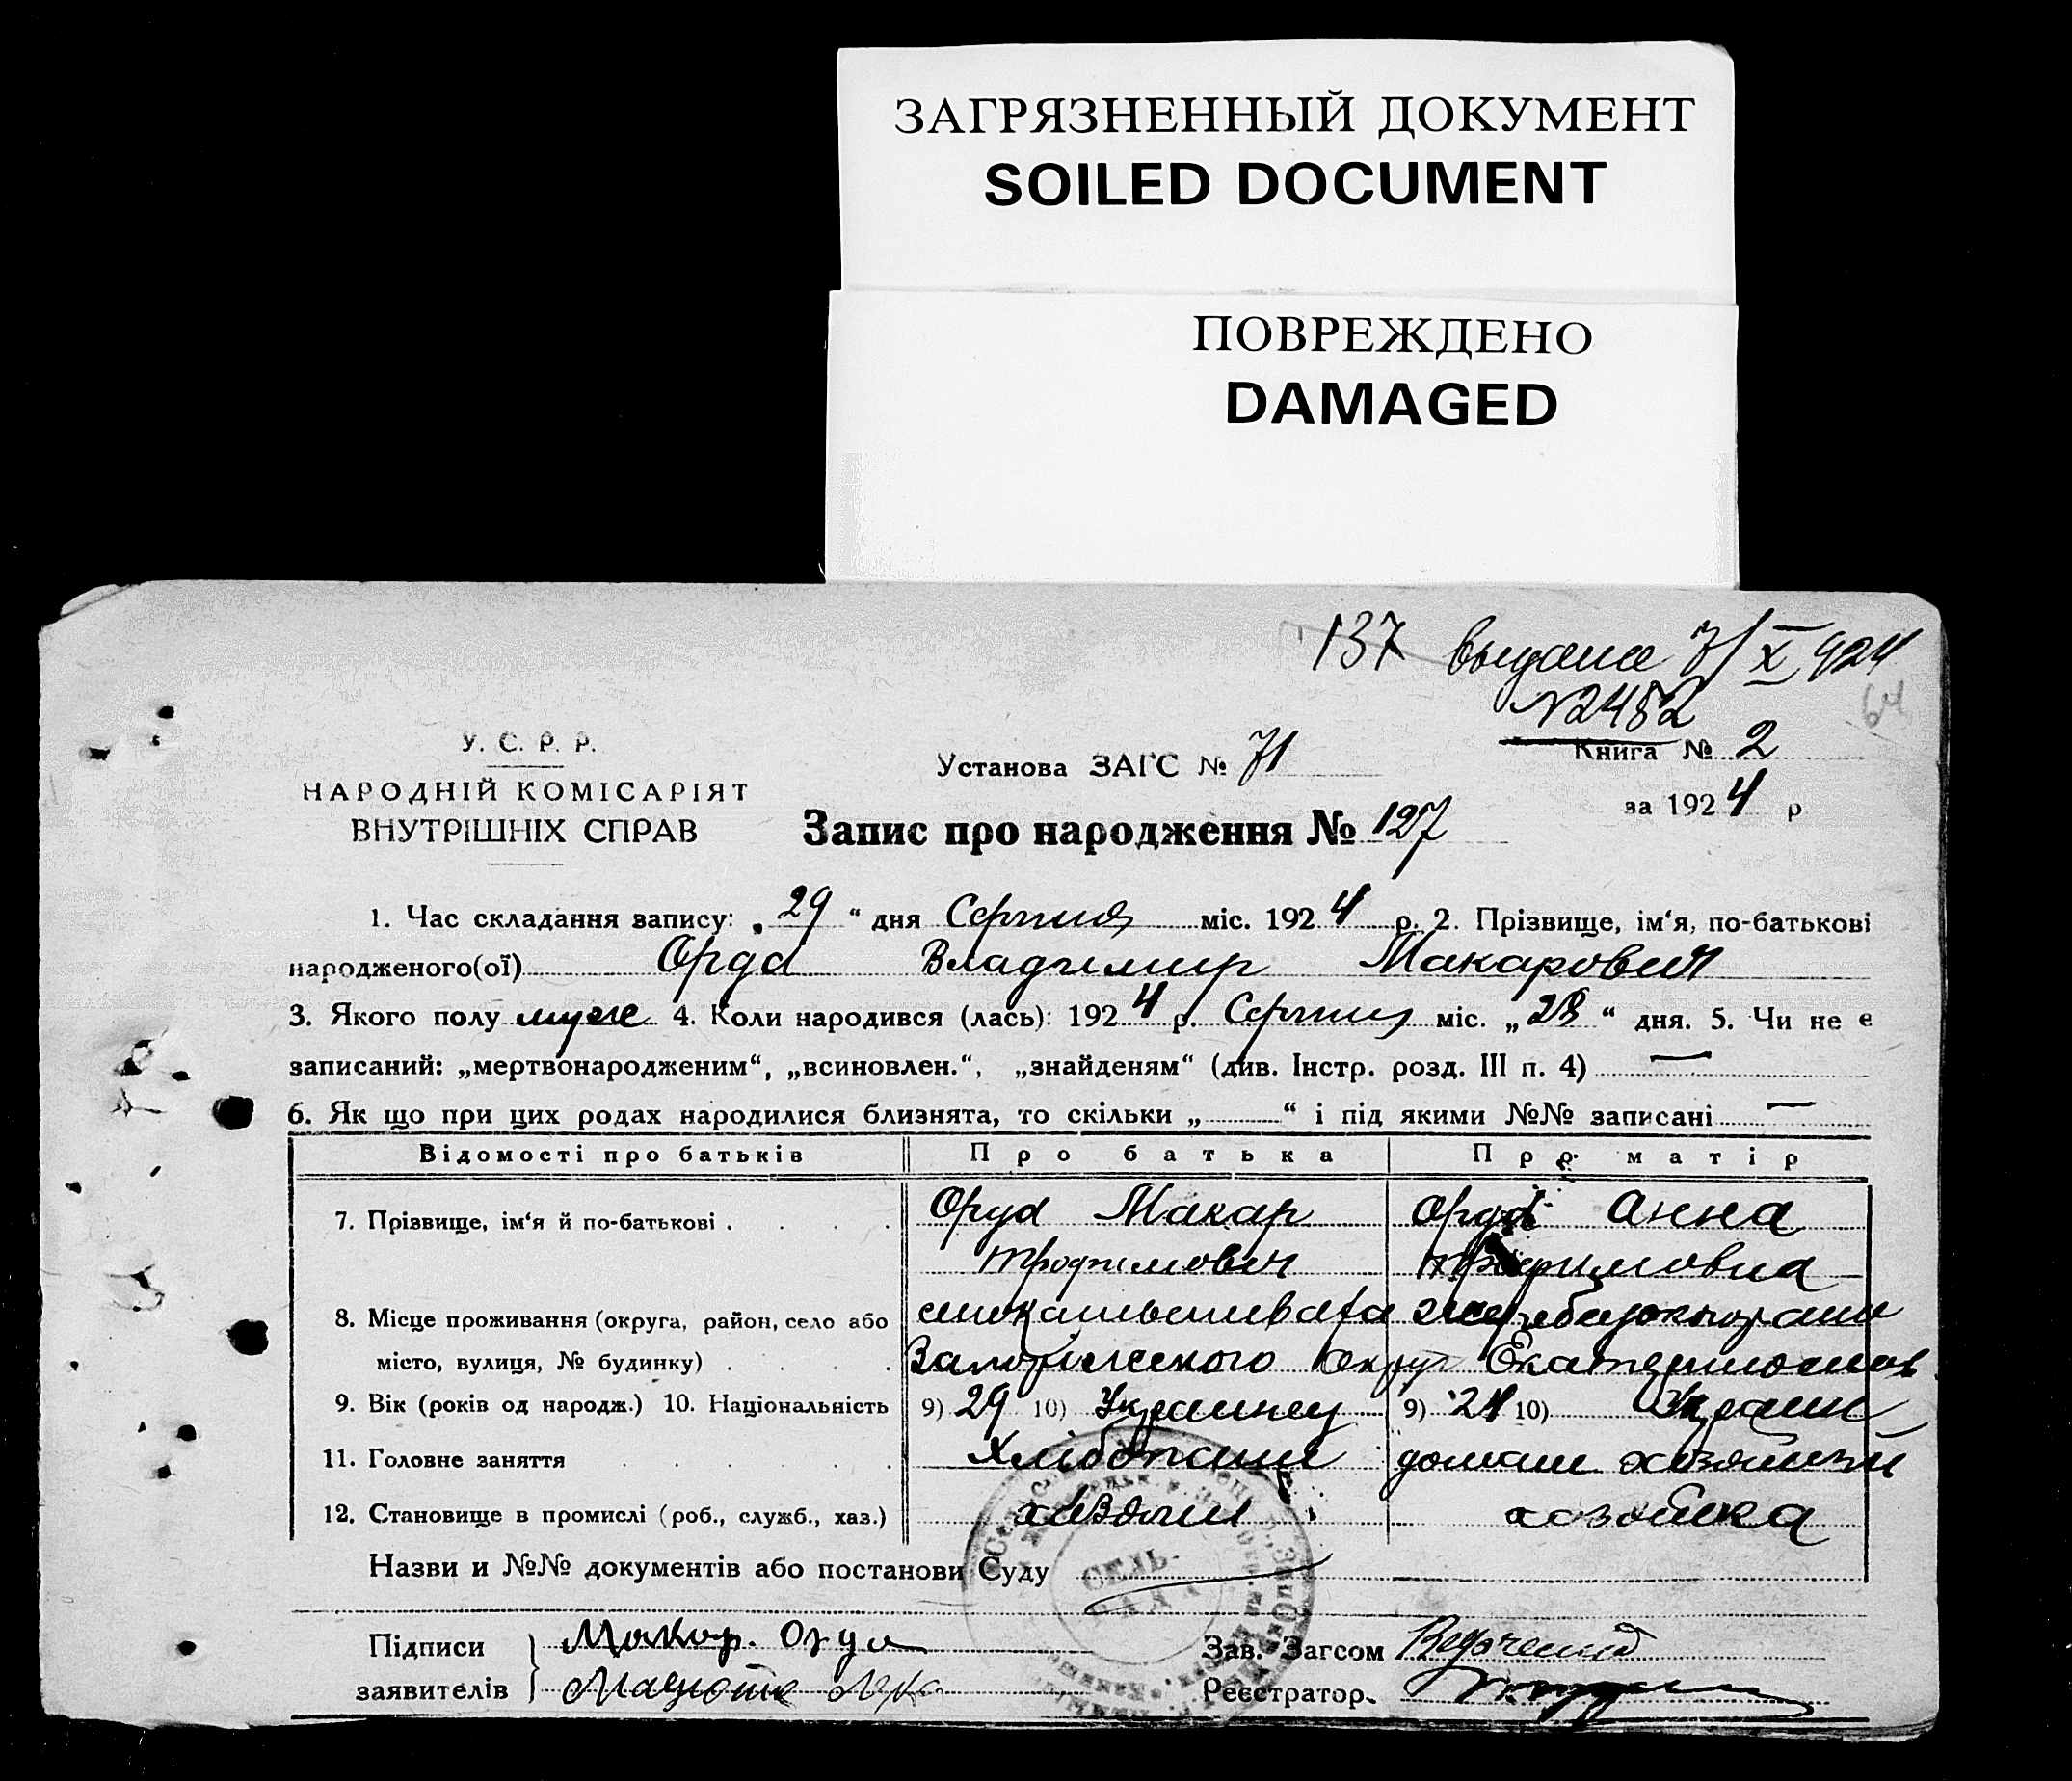 ЗАГРЯЗНЕННЫЙ ДОКУМЕНТ
SOILED DOCUMENT
ПОВРЕЖДЕНО
DAMAGED
137 выдана 7/X 924
№2482
64
У. С. Р. Р.
НАРОДНІЙ КОМІСАРІЯТ
ВНУТРІШНІХ СПРАВ
Установа ЗАГС № 71
Книга № 2
за 1924 р
Запис про народження № 127
1. Час складання запису: „29“ дня Серпня міс. 1924 р. 2. Прізвище, ім‘я, по-батькові
народженого(ої) Орда Владимир Макарович
3. Якого полу муж 4. Коли народився (лась): 1924 р. Серпня міс. „28“ дня. 5. Чи не є
записаний: „мертвонародженим“, „всиновлен.“, „знайденям“ (див. Інстр. розд. III п. 4) —
6. Як що при цих родах народилися близнята, то скільки „ “ і під якими №№ записані —
Відомості про батьків Про батька Про матір
7. Прізвище, ім‘я й по-батькові . Орда Макар Орда Анна
Трофимович
8. Місце проживання (округа, район, село або
місто, вулиця, № будинку) Екатеринослав
9. Вік (років од народж.) 10. Національність 9) 29 10) Украинец 9) 24 10) Украин
11. Головне заняття Хлібопаш домаш
12. Становище в промислі (роб., служб., хаз.) хозяин хозяйка
Назви и №№ документів або постанови Суду
СЕЛЬ-
РАДА
Підписи Макар. Орда Зав. Загсом
заявителів Реєстратор